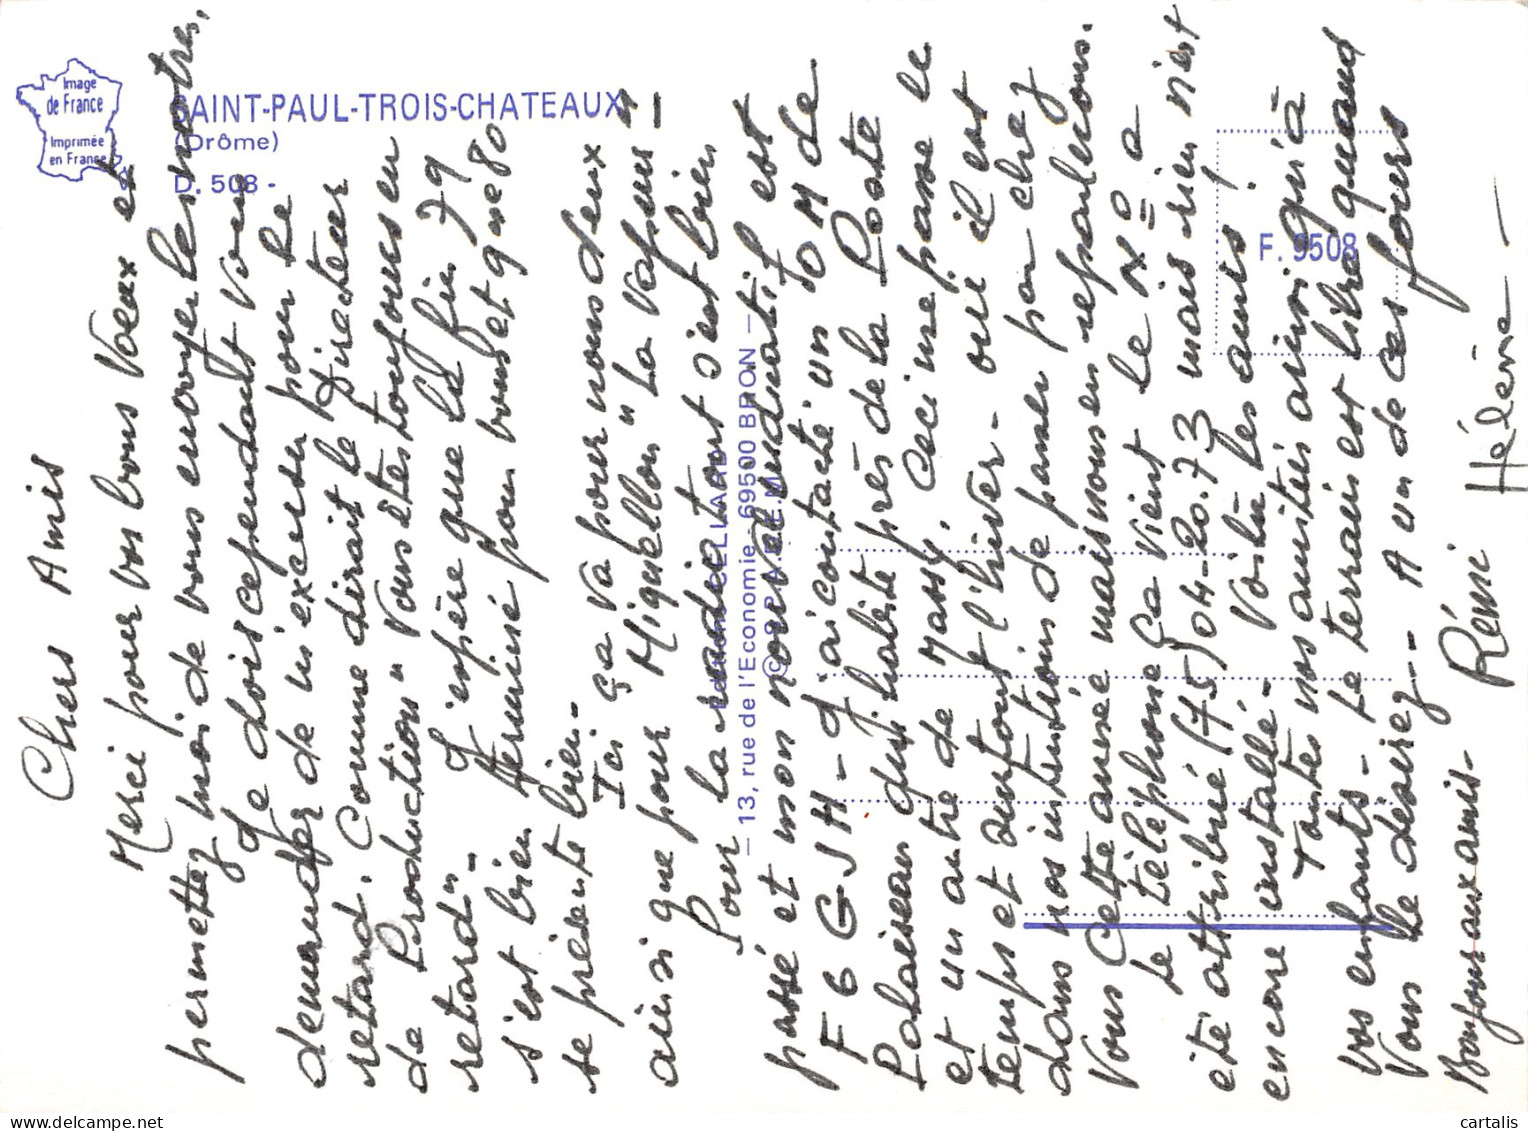 Image
de France
Imprimée
en France
SAINT-PAUL-TROIS-CHATEAUX
(Drôme)
D. 508 -
F. 9508
— 13, rue de l'Economie - 69500 BRON —
Chers Amis
Merci pour vos bons Voeux et
permettez moi de vous envoyer les notres,
Je dois cependant vous
demander de m'excuser pour le
retard. Comme dirait le Directeur
de Production " Vous êtes toujours en
retard".
J'espère que la fin 79
s'est bien terminée pour vous et que 80
se présente bien -
Ici ça va pour nous deux
ainsi que pour Miquellon " La Vapeur " -
Pour la radio tout s'est bien
passé et mon nouvel indicatif est
F 6 G J H - J'ai contacté un OM de
Palaiseau qui habite près de la Poste
et un autre de Massy. Ceci me passe le
temps et surtout l'hiver - oui il est
dans nos intentions de passer par chez
Vous Cette année mais nous en reparlerons.
Le téléphone ça vient le N° a
été attribué (75) 04-20.73 mais rien n'est
encore installé - Voilà les amis !
Toutes nos amitiés ainsi qu'à
vos enfants - Le terrain est libre quand
Vous le désirez - A un de ces jours
Bonjour aux amis - Rémi Hélène -
cartalis